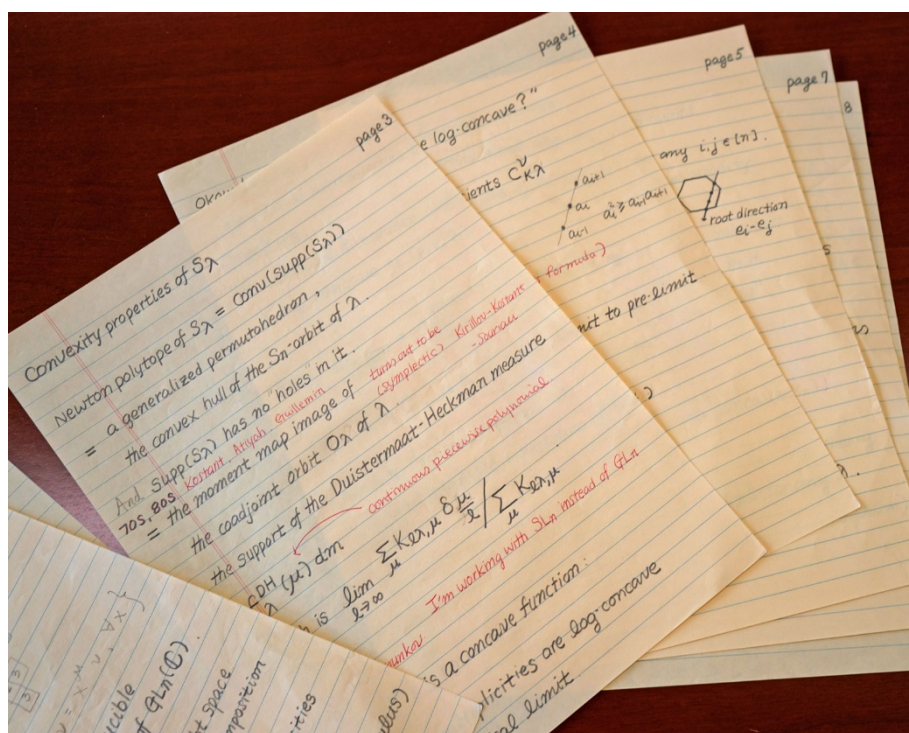 page 3
Convexity properties of Sλ
Newton polytope of Sλ = Conv(supp(Sλ))
= a generalized permutohedron,
the convex hull of the Sn-orbit of λ.
And supp(Sλ) has no "holes" in it.
70s, 80s Kostant, Atiyah, Guillemin
turns out to be
(symplectic)
Kirillov-Kostant
-Souriau
formula)
= the moment map image of
the coadjoint orbit Oλ of λ.
the support of the Duistermaat-Heckman measure
continuous piecewise polynomial
DH
λ (μ) dm
is lim l→∞ Σμ Klλ,μ δμ/l / Σμ Klλ,μ
I'm working with SLn instead of GLn
is a concave function.
plicities are log-concave
cal limit.
page 4
e log-concave?"
ients C^ν κλ
ai+1
ai
ai-1
ai² ≥ ai-1 ai+1
page 5
any i, j ∈ [n].
root direction
ei-ej
mit to pre-limit
page 7
8
ucible
of GLn(ℂ).
t space
mposition
cities
lus)